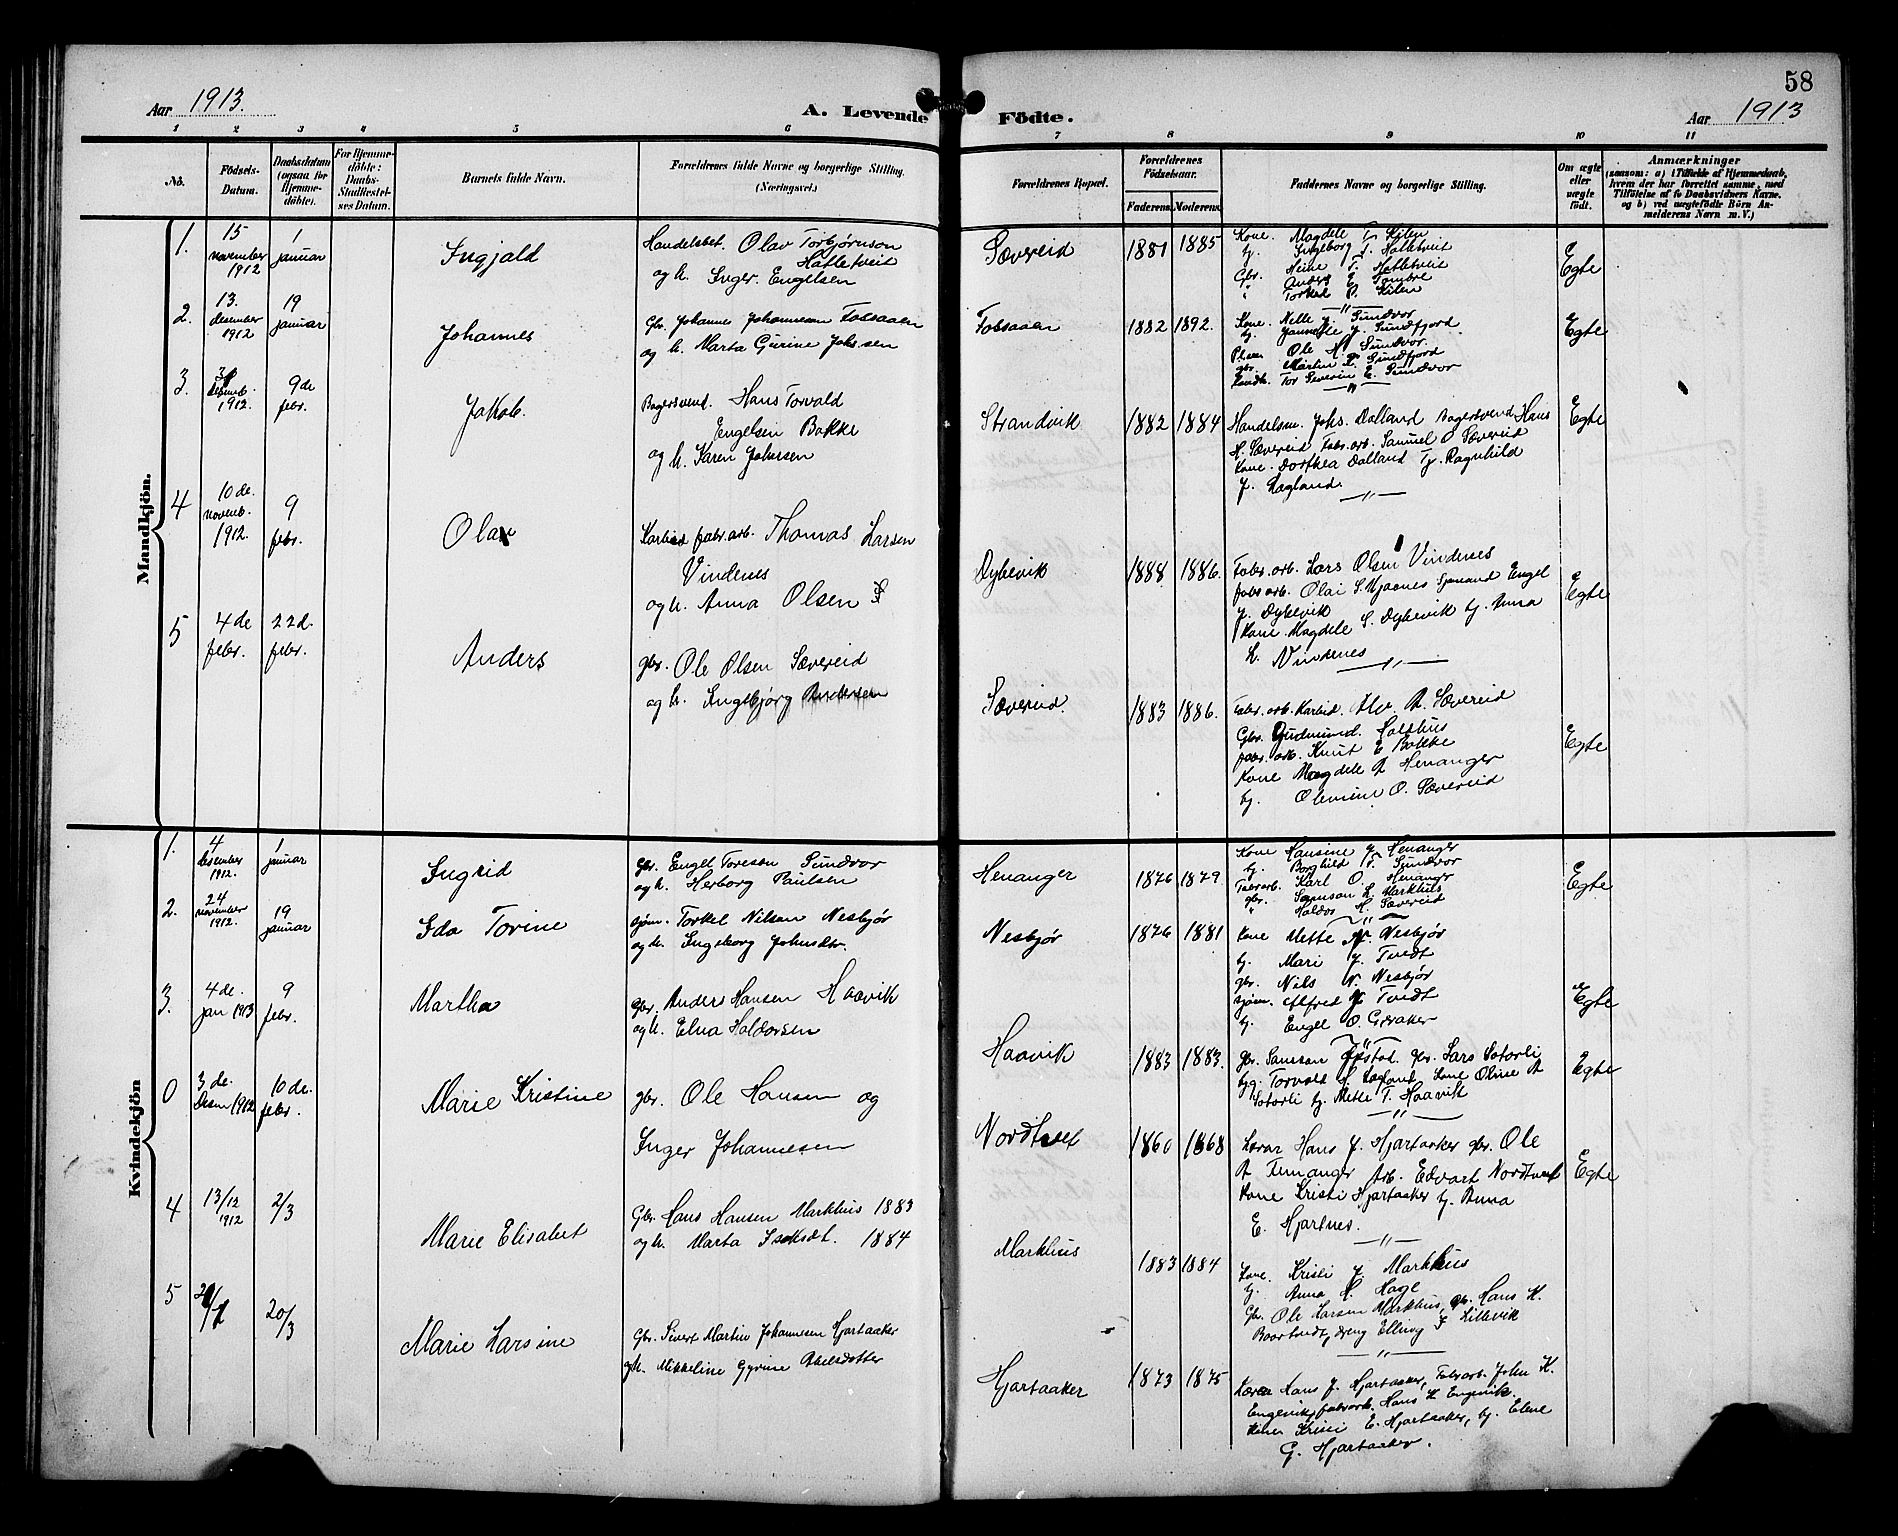 58
Aar 1913.
A. Levende Födte.
Aar 1913
1 2 3 4 5 6 7 8 9 10 11
No.
Födsels-
Datum.
Daabsdatum
(ogsaa for
Hjemme-
döbte).
For Hjemme-
döbte:
Daabs-
Stadfæstel-
ses Datum.
Barnets fulde Navn.
Forældrenes fulde Navne og borgerlige Stilling.
(Næringsvei.)
Forældrenes Bopæl.
Forældrenes
Födselsaar.
Faderens. Moderens.
Faddernes Navne og borgerlige Stilling.
Om ægte
eller
uægte
födt.
Anmærkninger
(saasom: a) i Tilfælde af Hjemmedaab,
hvem der har forrettet samme, med
Tilföielse af to Daabsvidners Navne,
og b) ved uægtefödte Börn An-
melderens Navn m. V.)
Mandkjön.
1.
15
november
1912
1
januar
Ingjald
Handelsbet. Olav Torbjørnson
Hatletveit
og h. Inger Engelsen
Sævereid
1881 1885
Kone. Magdele T. Kilen
tj. Ingeborg T. Hatletveit
Gbr. Neine T. Hatletveit
Anders E. Tombre
" Torkel O. Kilen
Egte
2.
13.
desember
1912
19
januar
Johannes
Gbr. Johannes Johannessen Fossaaen
og h. Marta Gurine Johs.sen
Fossaaen
1882 1892.
Kone. Nelle J. Sundvor
tj. Jannikle J. Sundfjord
Ole N. Sundvor.
gbr. Martin L. Sundfjord
Tor Severin E. Sundvor
Egte
3.
desemb.
1912.
9 de
febr.
Jakob.
Bagersvend. Hans Torvald
Engelsen Bakke
og h. Karen Johnsen
Strandvik
1882 1884
Handelsm. Johs. Dalland Bagersvend Hans
H. Sævereid Fabr.arb. Samuel O. Sævereid
Kone. Dorthea Dalland Tj. Ragnhild
J. Hagland.
Egte
4
10 de.
novemb.
1912.
9
febr.
Olav
Karbid fabr.arb. Thomas Larsen
Vindenes
og h. Anna Olsen
Dybevik
1888 1886.
Fabr.arb. Lars Olsen Vindenes
fabr arb. Olai S. Mjaanes Sjømand Engel
J. Dybevik
Kone Magdele S. Dybevik tj. Anna
L. Vindenes
Egte
5
4 de
febr.
22 d.
febr.
Anders
gbr. Ole Olsen Sævereid
og h. Ingebjørg Andersen
Sævereid.
1883 1886.
Fabr.arb. Karbid. A. Sævereid
Gbr. Gudmund. Holthus
fabr.arb. Knut E Bakke
Kone Magdele A Henanger
tj. Olemine O. Sævereid
Egte
Kvindekjön
1.
4
desember
1912.
1
januar
Ingrid
gbr. Engel Toresen Sundvor
og h. Herborg Paulsen
Henanger
1876 1879
Kone Hansine J Henanger
tj. Borghild T. Sundvor
Fabr.arb. Karl O. Henanger
gbr. Samson L. Markhus
" Haldor H. Sævereid
Egte
2.
24
november
1912.
19
januar
Ida Torine
sjøm. Torkel Nilsen Nesbjør
og h. Ingeborg Johnsdtr.
Nesbjør
1876 1881
Kone Mette N. Nesbjør
tj. Mari J. Tvedt
gbr. Nils N. Nesbjør
sjøm. Alfred J. Tvedt
tj. Engel O. Geraker
Egte
3.
4 de.
jan 1913
9
febr.
Martha
gbr. Anders Hansen Haavik
og h. Elna Haldorsen
Haavik
1883 1883.
gbr. Samson Økstad. gbr. Lars Sotorli
Torvald H. Hagland Kone Oline A
Sotorli tj. Mette T. Haavik
Egte
0
3 de.
Desm 1912
10 de.
febr.
Marie Kristine
gbr. Ole Hansen og
Inger Johannesen
Nordtvet
1860 1868
Lærar Hans J. Hjartaaker gbr. Ole
A Femanger Arb. Edvart Nordtvet
Kone Kristi Hjartaaker tj. Anna
E. Hjartnes.
Egte
4
13/12
1912
2/3
Marie Elisabet
Gbr. Hans Hansen Markhus 1883
og h. Marta Isaksdt. 1884
Markhus
1883 1884
Kone. Kristi J. Markhus
tj. Anna H. Hage
Gbr. Ole Larsen Markhus, gbr. Hans K.
Baartvedt, dreng Elling I Lillevik
5
20/3
Marie Larsine
Gbr. Sivert Martin Johannesen Hjartaaker
og h. Mikkeline Gyrine Abelsdotter
Hjartaaker
1873 1875
Lærar Hans J. Hjartaaker, Fabr.arb. John K.
Engevik, fabr.arb. Hans L Engevik.
Kone Kristi E. Hjartaaker, tj. Elene
G. Hjartaaker.